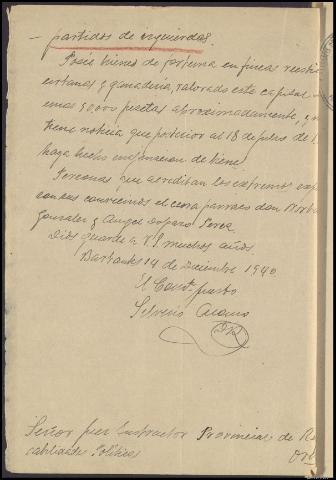 — partidos de izquierdas.
Posée bienes de fortuna en fincas rusti
urbanas y ganaderia, valorado este capital
unas 50.000 pesetas aproximadamente, y n
tiene noticia que posterior al 18 de julio de 1
haya hecho enajenacion de bienes
Personas que acreditan los extremos
convecinos el cura parraco don
Gonzalez y Angel Perez.
Dios guarde a V.S muchos años.
14 de Diciembre 1940
El Comte. puesto
Silverio
Señor Juez Instructor Provincial de R
cabilidades Politicas